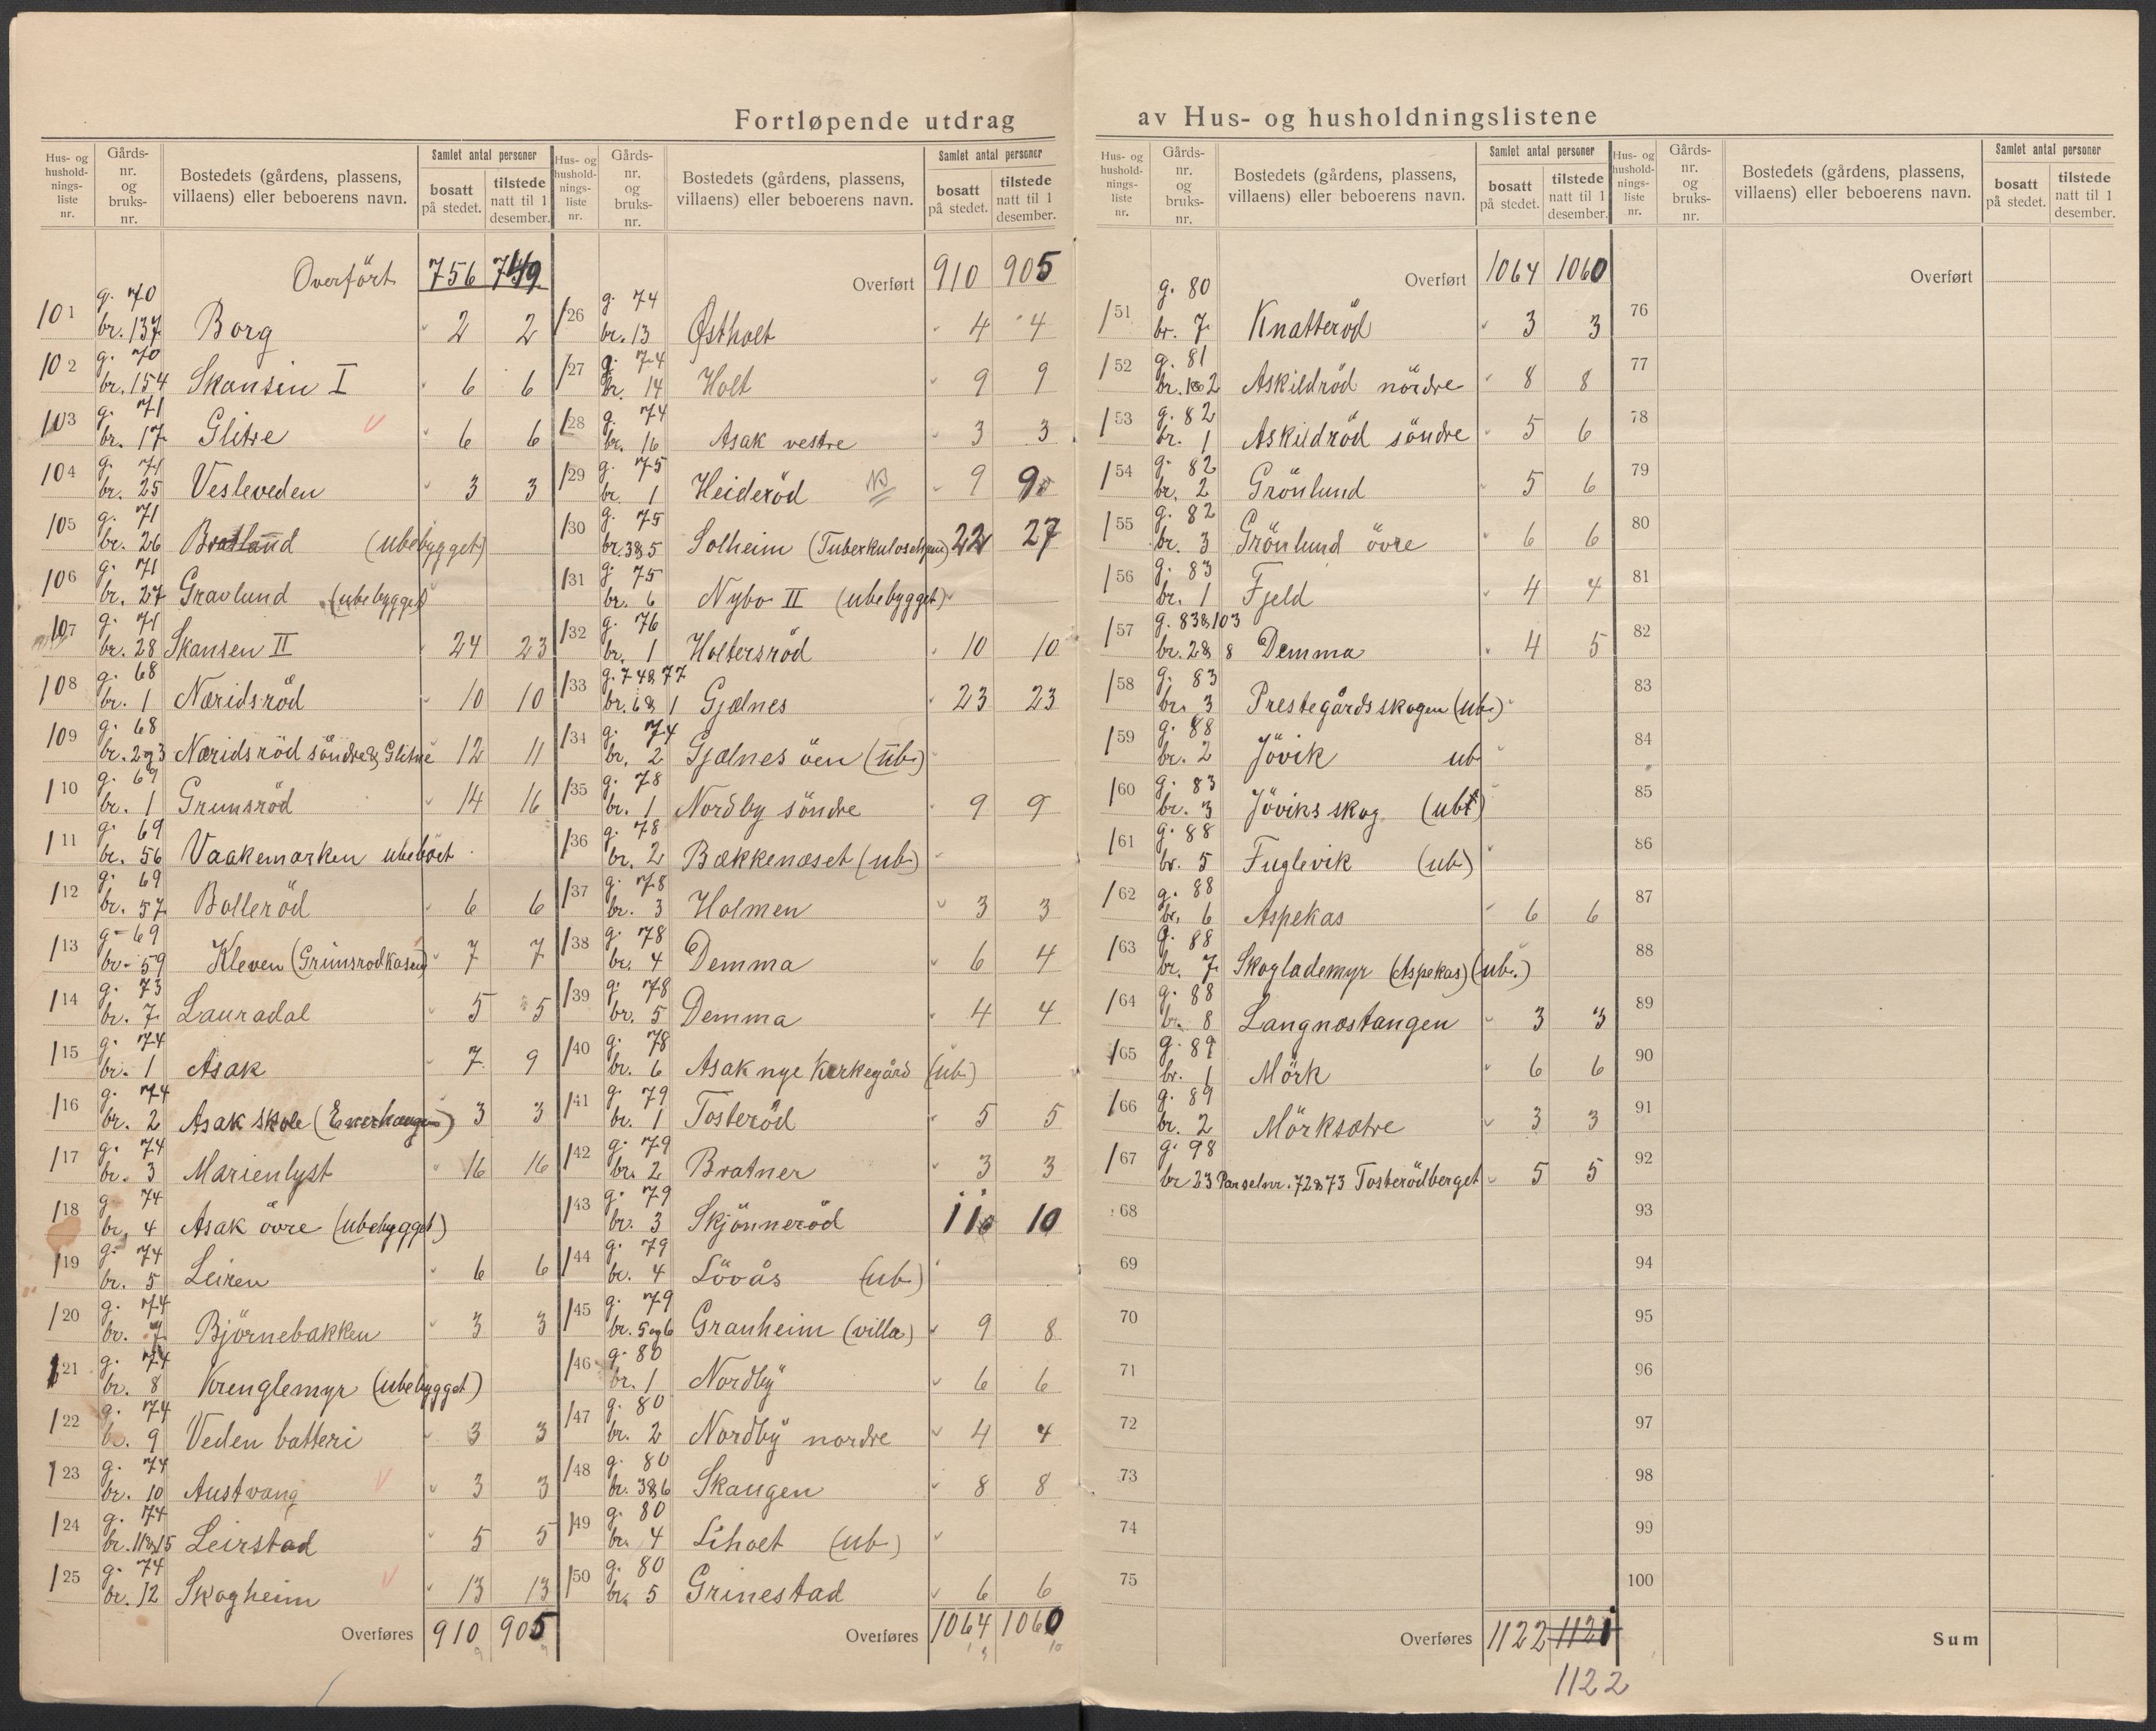 Fortløpende utdrag av Hus- og husholdningslistene
Hus- og husholdningsliste nr. | Gårdsnr. og bruksnr. | Bostedets (gårdens, plassens, villaens) eller beboerens navn. | Samlet antal personer | bosatt på stedet. | tilstede natt til 1 desember.
Overført 756 749
101 g. 70 br. 137 Borg 2 2
102 g. 70 br. 154 Skansin I 6 6
103 g. 71 br. 17 Glitre 6 6
104 g. 71 br. 25 Vesleveden 3 3
105 g. 71 br. 26 Bratland (ubebygget)
106 g. 71 br. 27 Gravlund (ubebygget)
107 g. 71 br. 28 Skansen II 24 23
108 g. 68 br. 1 Næridsröd 10 10
109 g. 68 br. 2og3 Næridsröd söndre & Glitre 12 11
110 g. 69 br. 1 Grimsröd 14 16
111 g. 69 br. 56 Vaakemarken ubeböet
112 g. 69 br. 57 Bolleröd 6 6
113 g. 69 br. 59 Kleven (Grimsrodkasen) 7 7
114 g. 73 br. 7 Lauradal 5 5
115 g. 74 br. 1 Asak 7 9
116 g. 74 br. 2 Asak skole (Enerhaugen) 3 3
117 g. 74 br. 3 Marienlyst 16 16
118 g. 74 br. 4 Asak övre (ubebygget)
119 g. 74 br. 5 Leiren 6 6
120 g. 74 br. 7 Björnebakken 3 3
121 g. 74 br. 8 Krenglemyr (ubebygget)
122 g. 74 br. 9 Veden batteri 3 3
123 g. 74 br. 10 Austvang 3 3
124 g. 74 br. 11&15 Leirstad 5 5
125 g. 74 br. 12 Skogheim 13 13
Overføres 910 905
Hus- og husholdningsliste nr. | Gårdsnr. og bruksnr. | Bostedets (gårdens, plassens, villaens) eller beboerens navn. | Samlet antal personer | bosatt på stedet. | tilstede natt til 1 desember.
Overført 910 905
126 g. 74 br. 13 Østholt 4 4
127 g. 74 br. 14 Holt 9 9
128 g. 74 br. 16 Asak vestre 3 3
129 g. 75 br. 1 Heideröd NB 9 9
130 g. 75 br. 3&5 Solheim (Tuberkulosehjem) 22 27
131 g. 75 br. 6 Nybo II (ubebygget)
132 g. 76 br. 1 Holtersröd 10 10
133 g. 74&77 br. 6&1 Gjælnes 23 23
134 g. 74 br. 2 Gjælnes öen (ub.)
135 g. 78 br. 1 Nordby söndre 9 9
136 g. 78 br. 2 Bækkenæset (ub.)
137 g. 78 br. 3 Holmen 3 3
138 g. 78 br. 4 Demma 6 4
139 g. 78 br. 5 Demma 4 4
140 g. 78 br. 6 Asak nye Kirkegård (ub.)
141 g. 79 br. 1 Tosteröd 5 5
142 g. 79 br. 2 Bratner 3 3
143 g. 79 br. 3 Skjönneröd 11 10
144 g. 79 br. 4 Lövås (ub.)
145 g. 79 br. 5og6 Granheim (villa) 9 8
146 g. 80 br. 1 Nordby 6 6
147 g. 80 br. 2 Nordby nordre 4 4
148 g. 80 br. 3&6 Skaugen 8 8
149 g. 80 br. 4 Liholt (ub.)
150 g. 80 br. 5 Grinestad 6 6
Overføres 1064 1060
Hus- og husholdningsliste nr. | Gårdsnr. og bruksnr. | Bostedets (gårdens, plassens, villaens) eller beboerens navn. | Samlet antal personer | bosatt på stedet. | tilstede natt til 1 desember.
Overført 1064 1060
151 g. 80 br. 7 Knatteröd 3 3
152 g. 81 br. 1&2 Askildröd nördre 8 8
153 g. 82 br. 1 Askildröd söndre 5 6
154 g. 82 br. 2 Grönlund 5 6
155 g. 82 br. 3 Grönlund övre 6 6
156 g. 83 br. 1 Fjeld 4 4
157 g. 83&103 br. 2& 8 Demma 4 5
158 g. 83 br. 3 Prestegårdsskogen (ub.)
159 g. 88 br. 2 Jövik ub
160 g. 83 br. 3 Jöviks skog (ub.)
161 g. 88 br. 5 Fuglevik (ub.)
162 g. 88 br. 6 Aspekas 6 6
163 g. 88 br. 7 Skoglademyr (Aspekas) (ub.)
164 g. 88 br. 8 Langnæstangen 3 3
165 g. 89 br. 1 Mörk 6 6
166 g. 89 br. 2 Mörksætre 3 3
167 g. 98 br 23 Parselnr. 72&73 Tosterödberget 5 5
68
69
70
71
72
73
74
75
Overføres 1122 1121
1122
Hus- og husholdningsliste nr. | Gårdsnr. og bruksnr. | Bostedets (gårdens, plassens, villaens) eller beboerens navn. | Samlet antal personer | bosatt på stedet. | tilstede natt til 1 desember.
Overført
76
77
78
79
80
81
82
83
84
85
86
87
88
89
90
91
92
93
94
95
96
97
98
99
100
Sum